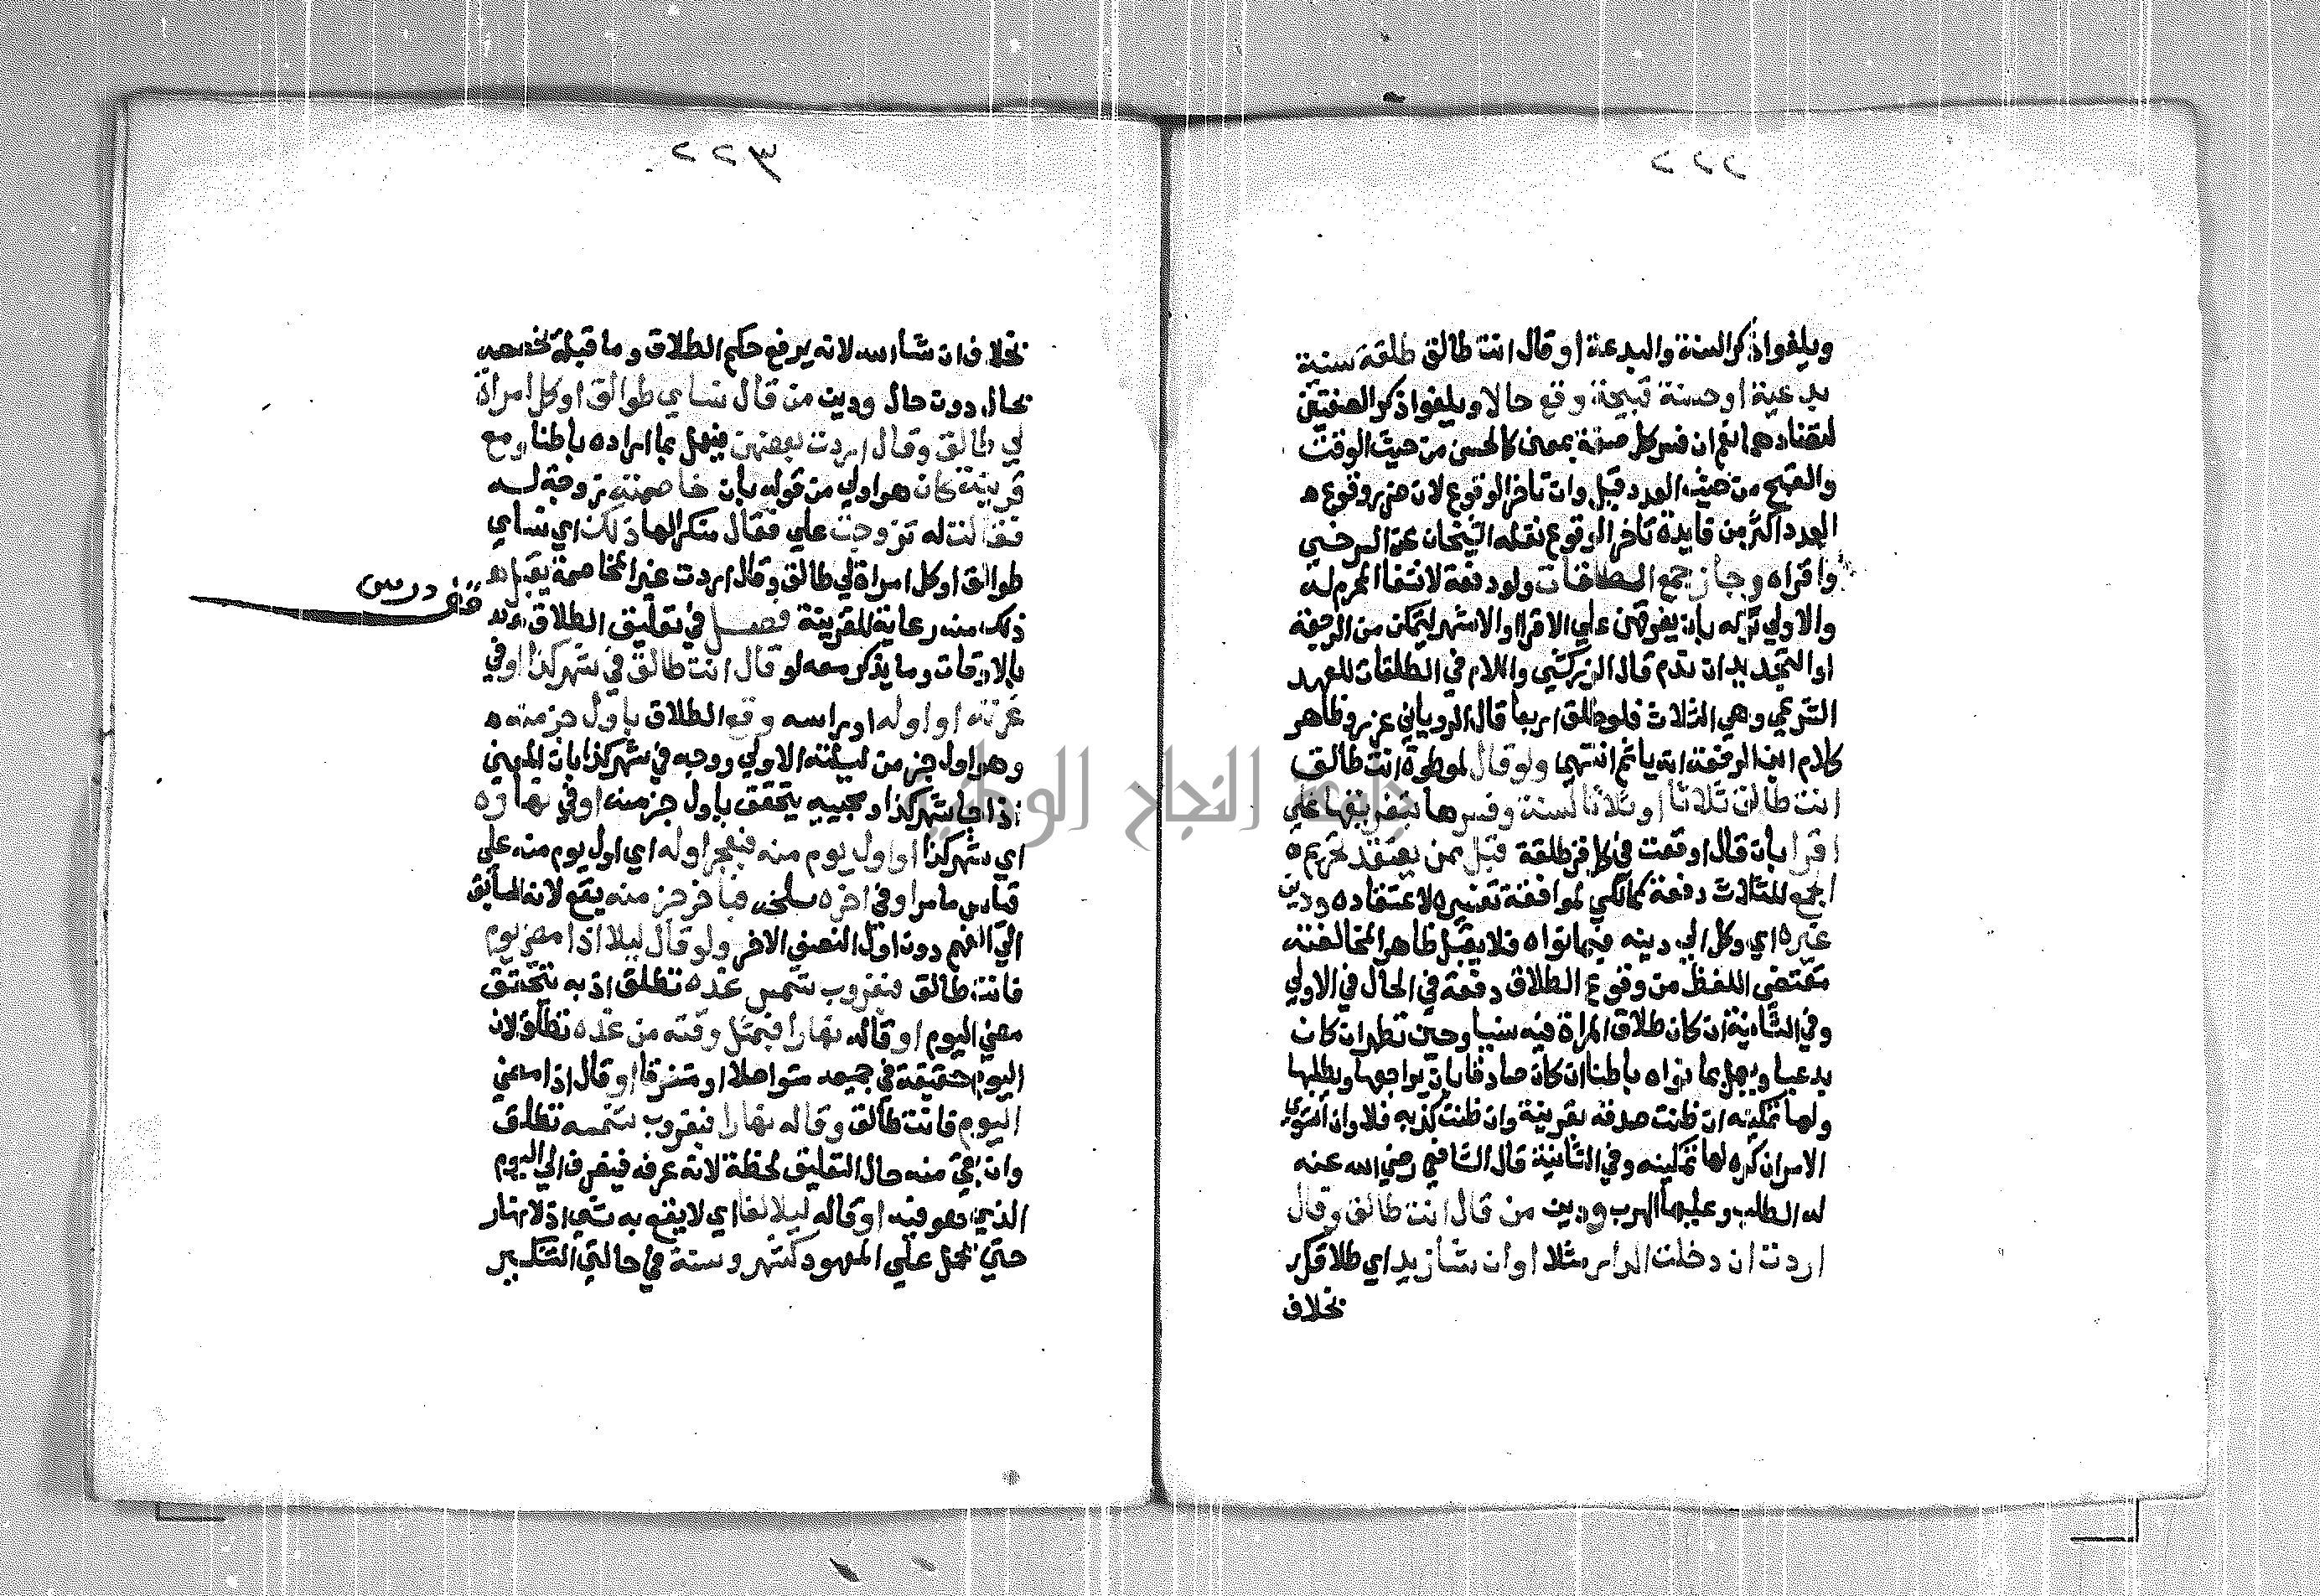 ٢٢٢
ويلغوا ذكر السنة والبدعة او قال انت طالق طلقة سنية
بدعية او حسنة قبيحة وقع حالا ويلغوا ذكر الصفتين
لتضادهما نعم ان فسر كل صفة بمعنى كالحسن من حيث الوقت
والقبح من حيث العدد قبل وان تاخر الوقوع لان ضرر وقوع
العدد اكثر من فايدة تاخر الوقوع نقله الشيخان عن السرخسي
واقراه وجاز جمع الطلقات ولو دفعة لانتفا المحرم له
والاولي تركه بان يفرقهن علي الاقرا او الاشهر ليتمكن من الرجعة
او التجديد ان ندم قال الزركشي واللام في الطلقات للعهد
الشرعي وهي الثلاث فلو طلق اربعا قال الروياني عزر وظاهر
كلام ابن الرفعة انه ياثم انتهي ولو قال لموطوة انت طالق
انت طالق ثلاثا او ثلاثا لسنة وفسرها بتفريقها علي
اقرا بان قال اوقعت في كل قرء طلقة قبل ممن يعتقد تحريم
الجمع للثلاث دفعة كمالكي لموافقة تفسيره لاعتقاده ودين
غيره اي وكل الي دينه فيما نواه فلا يقبل ظاهرا لمخالفته
مقتضى اللفظ من وقوع الطلاق دفعة في الحال في الاولي
وفي الثانية ان كان طلاق المراة فيه سنيا وحين تطهر ان كان
بدعيا ويعمل بما نواه باطنا ان كان صادقا بان يراجعها ويطلبها
ولها تمكينه ان ظنت صدقه بقرينة وان ظنت كذبه فلا وان استوى
الامران كره لها تمكينه وفي الثانية قال الشافعي رضي الله عنه
له الطلب وعليها الهرب ودين من قال انت طالق وقال
اردت ان دخلت الدار مثلا او ان شا زيد اي طلاقك
بخلاف
٢٢٣
بخلاف ان شا الله لانه يرفع حكم الطلاق وما قبله تخصيصه
بحال دون حال ودين من قال نساي طوالق او كل امراة
لي طالق وقال اردت بعضهن فيعمل بما اراده باطنا ومع
قرينة كان هو اولي من قوله بان خاصمته زوجة له
فقالت له تزوجت علي فقال منكرا لهاذلك اي نساي
طوالق او كل امراة لي طالق وقال اردت غير المخاصمة يقبل
ذلك منه رعاية للقرينة فصل في تعليق الطلاق
بالاوقات وما يذكر معه لو قال انت طالق في شهر كذا او في
غرته او اوله او راسه وقع الطلاق باول جزء منه
وهو اول جزء من ليلته الاولي ووجه في شهر كذا بان المعني
اذا جا شهر كذا ومجييه يتحقق باول جزء منه او في نهاره
اي شهر كذا او اول يوم منه فبفجر اوله اي اول يوم منه علي
قياس ما مر او في اخره سلخه فباخر جزء منه يقع لانه السابق
الي الفهم دون اول النصف الاخر ولو قال ليلا اذا مضى يوم
فانت طالق فبغروب شمس غده تطلق اذ به يتحقق
مضي اليوم او قاله نهارا فبمثل وقته من غده تطلق لان
اليوم حقيقة في جميعه متواصلا او متفرقا او قال اذا مضي
اليوم فانت طالق وقاله نهارا فبغروب شمسه تطلق
وان بقي منه حال التعليق لحظة لانه عرفه فيصرف الي اليوم
الذي هو فيه او قاله ليلا لغا اي لا يقع به شي اذ لا نهار
حتي يحمل علي المعهود كشهر وسنة في حالتي التنكير
قف درس
جامعة النجاح الوطنية